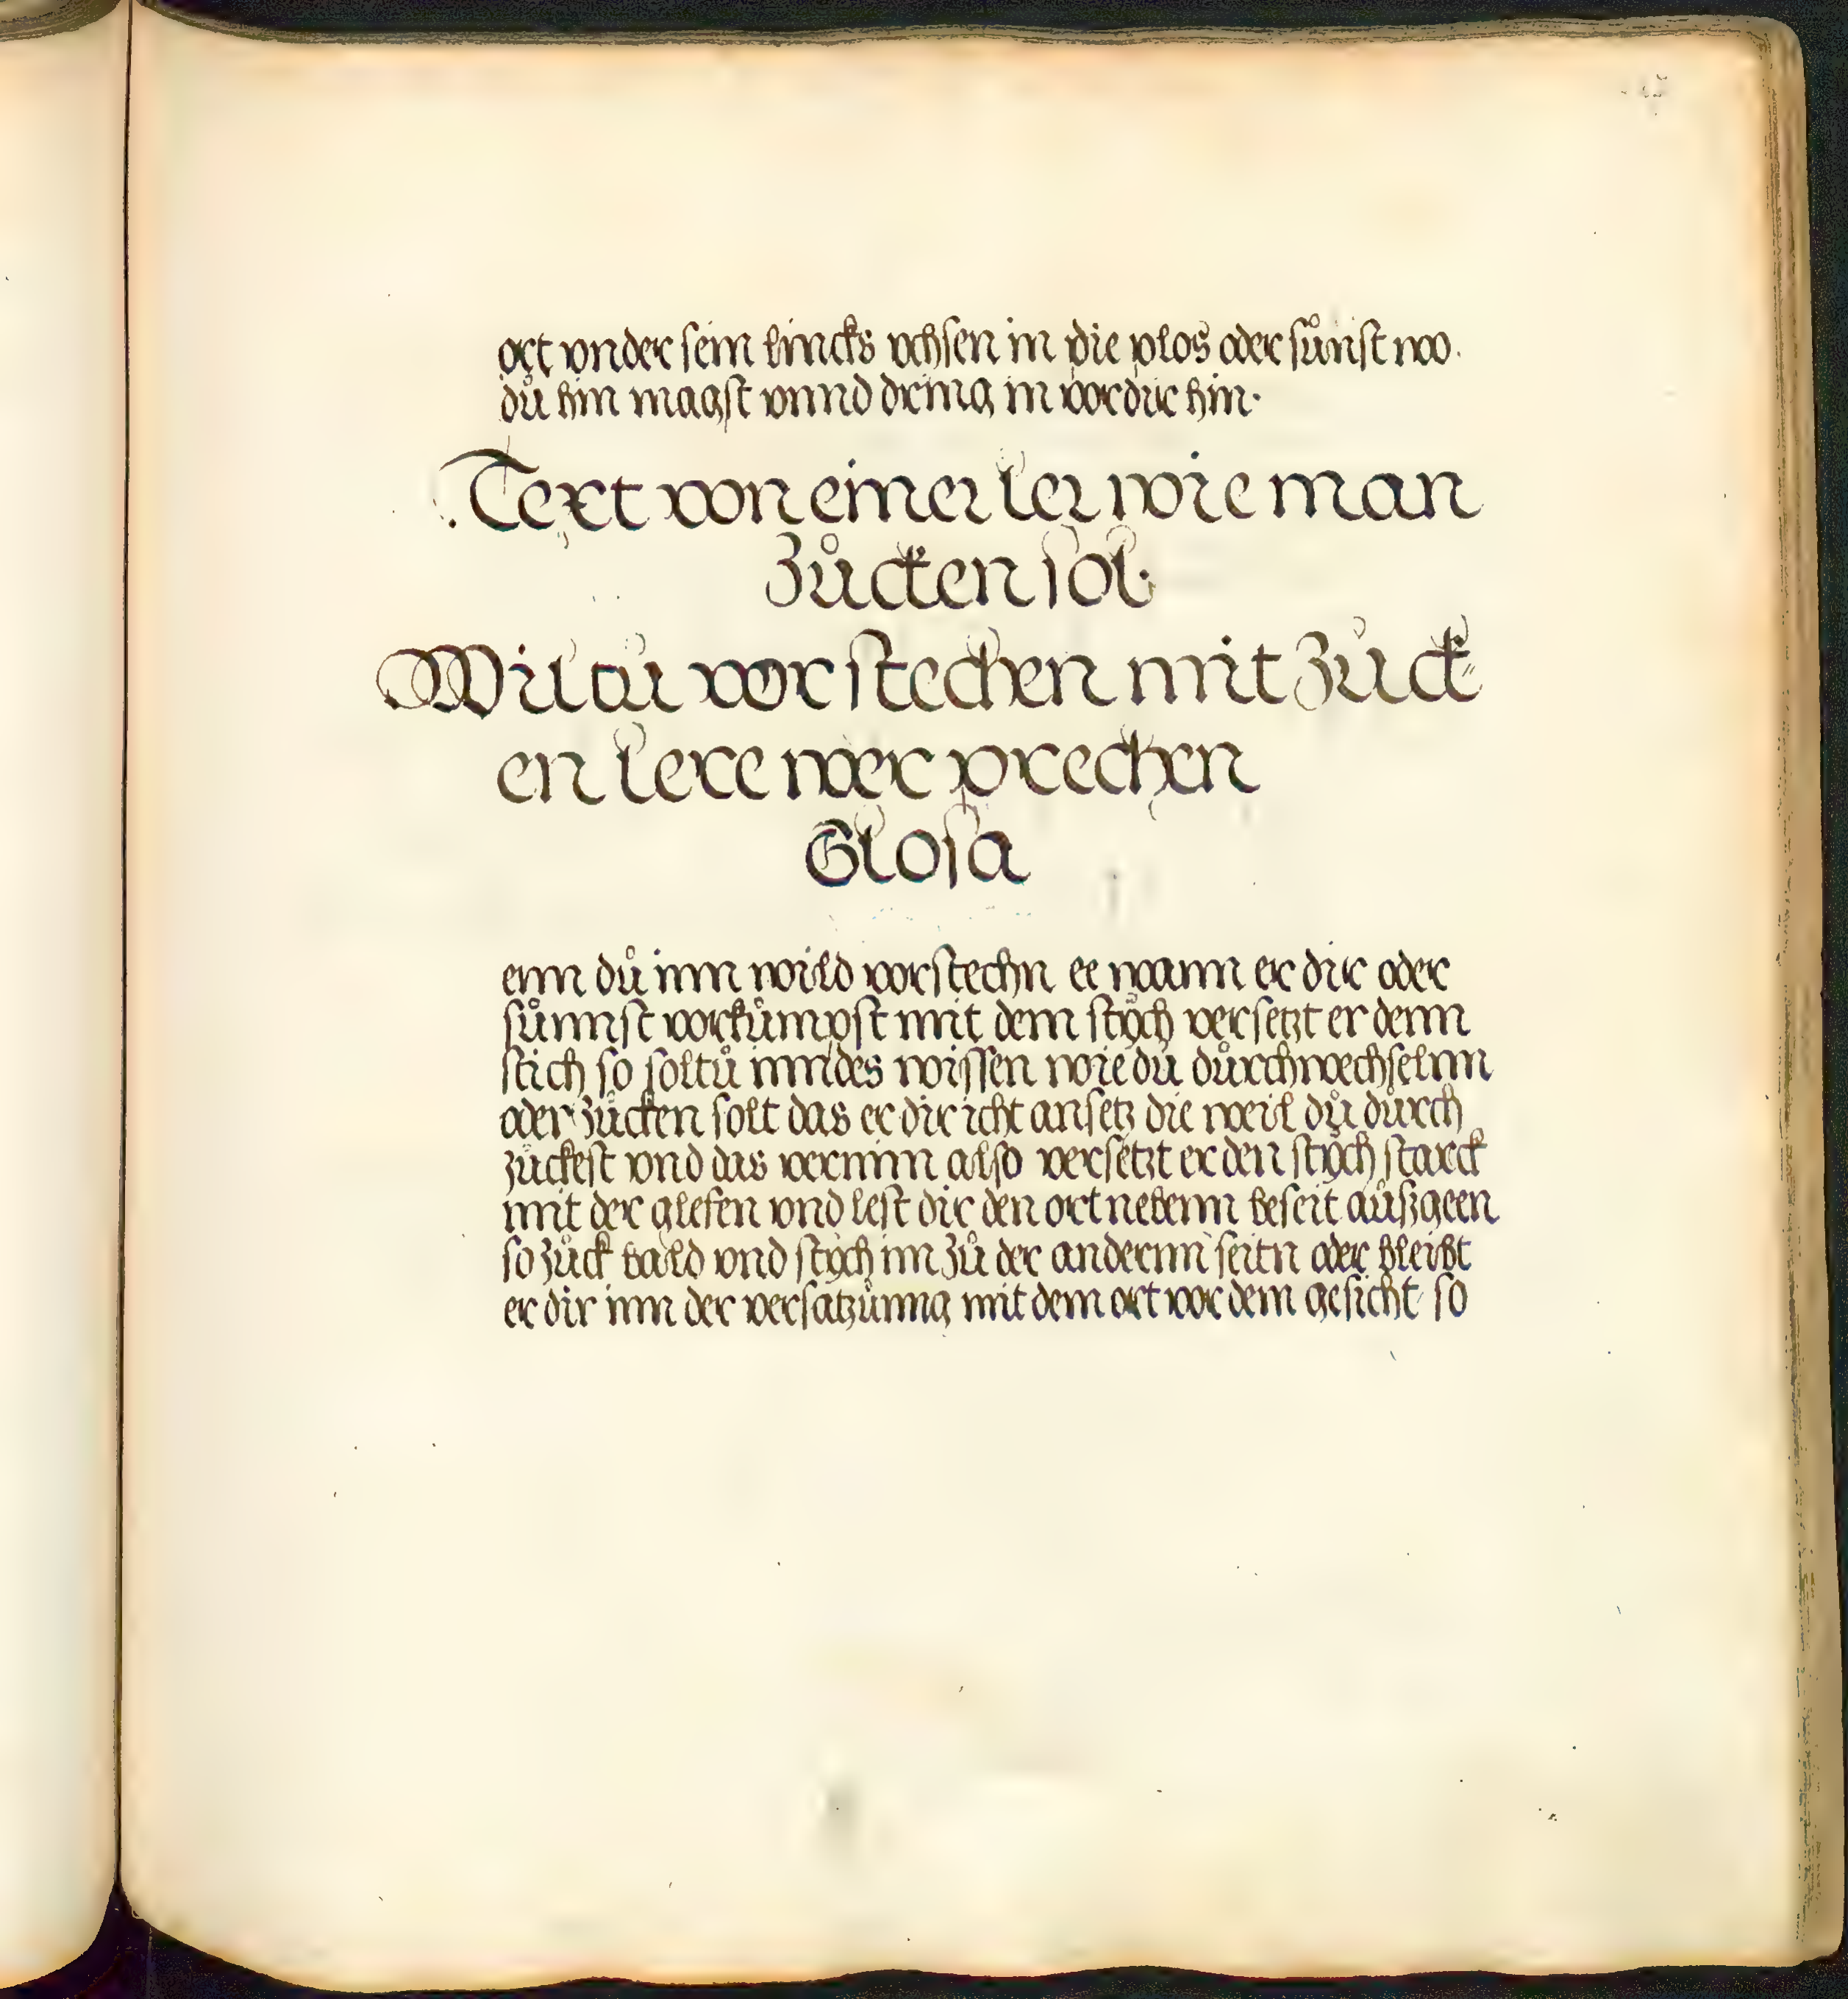 ort vnder sein lincks vchsen in die plos oder sůnst wo.
dů hin magst vnnd dring in vor dir hin.
Text von einer ler wie man
Zůcken sol.
Wiltu vor stechen mit Zuck
en lere wer prechen
Glosa
enn dů inn wild vorstechn ee wann er dir oder
sůnnst vorkůmpst mit dem stych versetzt er denn
stich so soltů inndes wissen wie dů důrchwechselnn
oder zůcken solt das er dir icht ansetz die weil dů důrch
zůckest vnd das vernim also versetzt er den stych starck
mit der glefen vnd lest dir den ort nebenn beseit aůßgeen
so zůck bald vnd stych im zů der andernn seitn oder bleibt
er dir inn der versatzůnng mit dem ort vor dem gesicht so